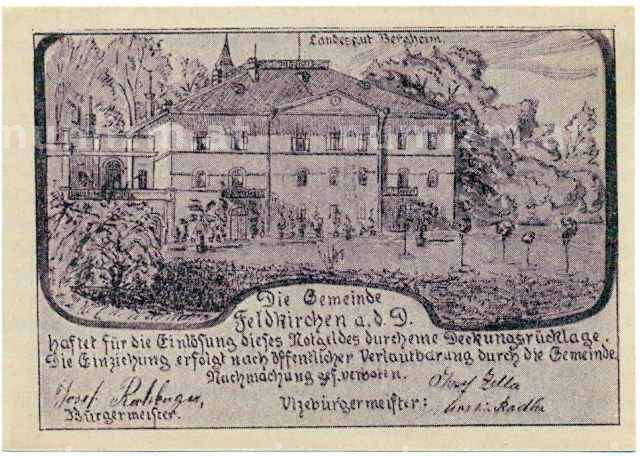 Landesgut Bergheim.
Die Gemeinde
Feldkirchen a.d.D.
haftet für die Einlösung dieses Notgeldes durch eine Deckungsrücklage.
Die Einziehung erfolgt nach öffentlicher Verlautbarung durch die Gemeinde.
Nachmachung gs. verboten.
Josef
Bürgermeister.
Vizebürgermeister:
Josef Zella